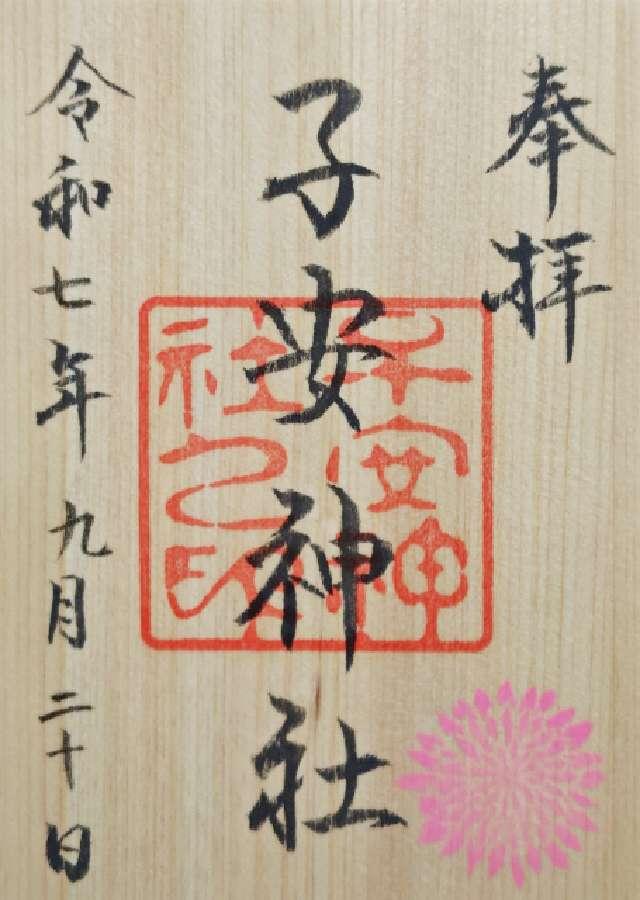 奉拝
子安神社
子安神
社之印
令和七年九月二十日